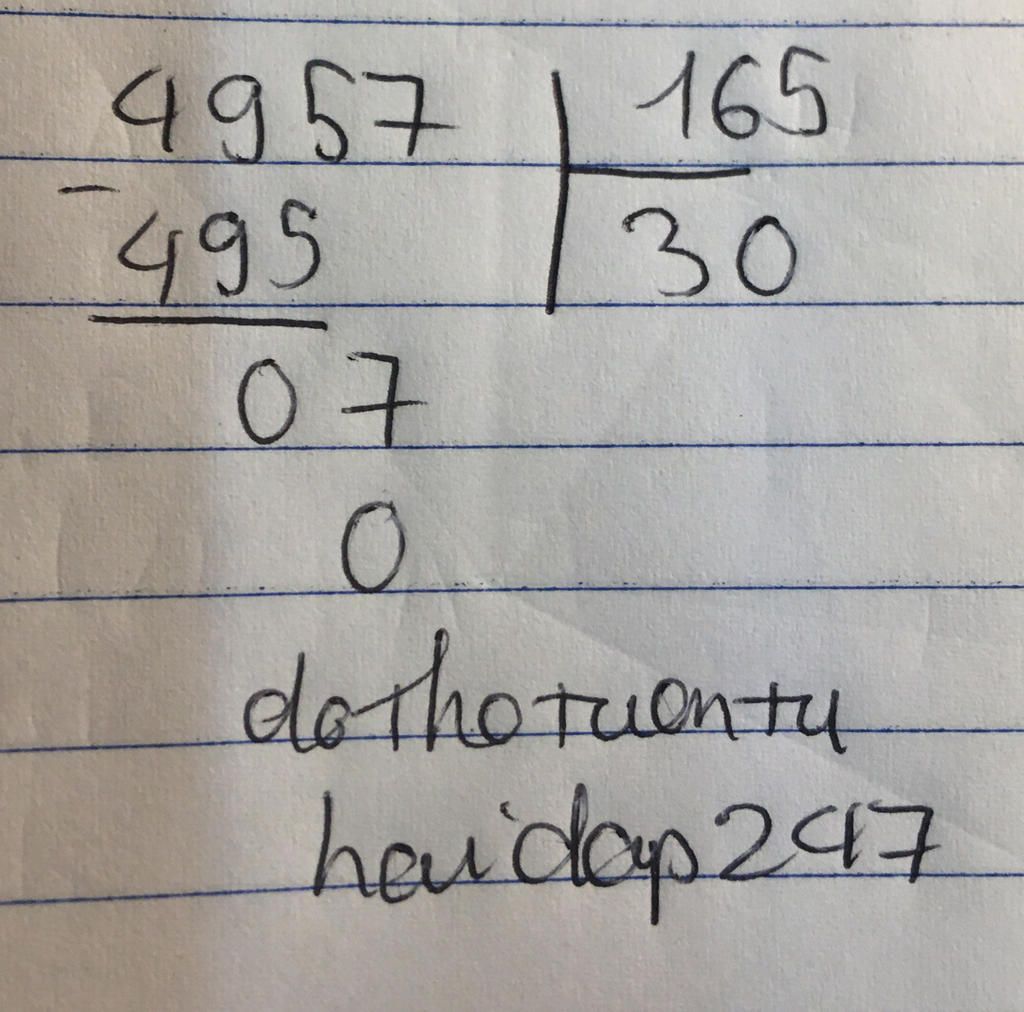 4957 165
- 495 30
07
0
dothotuontu
hoidap247